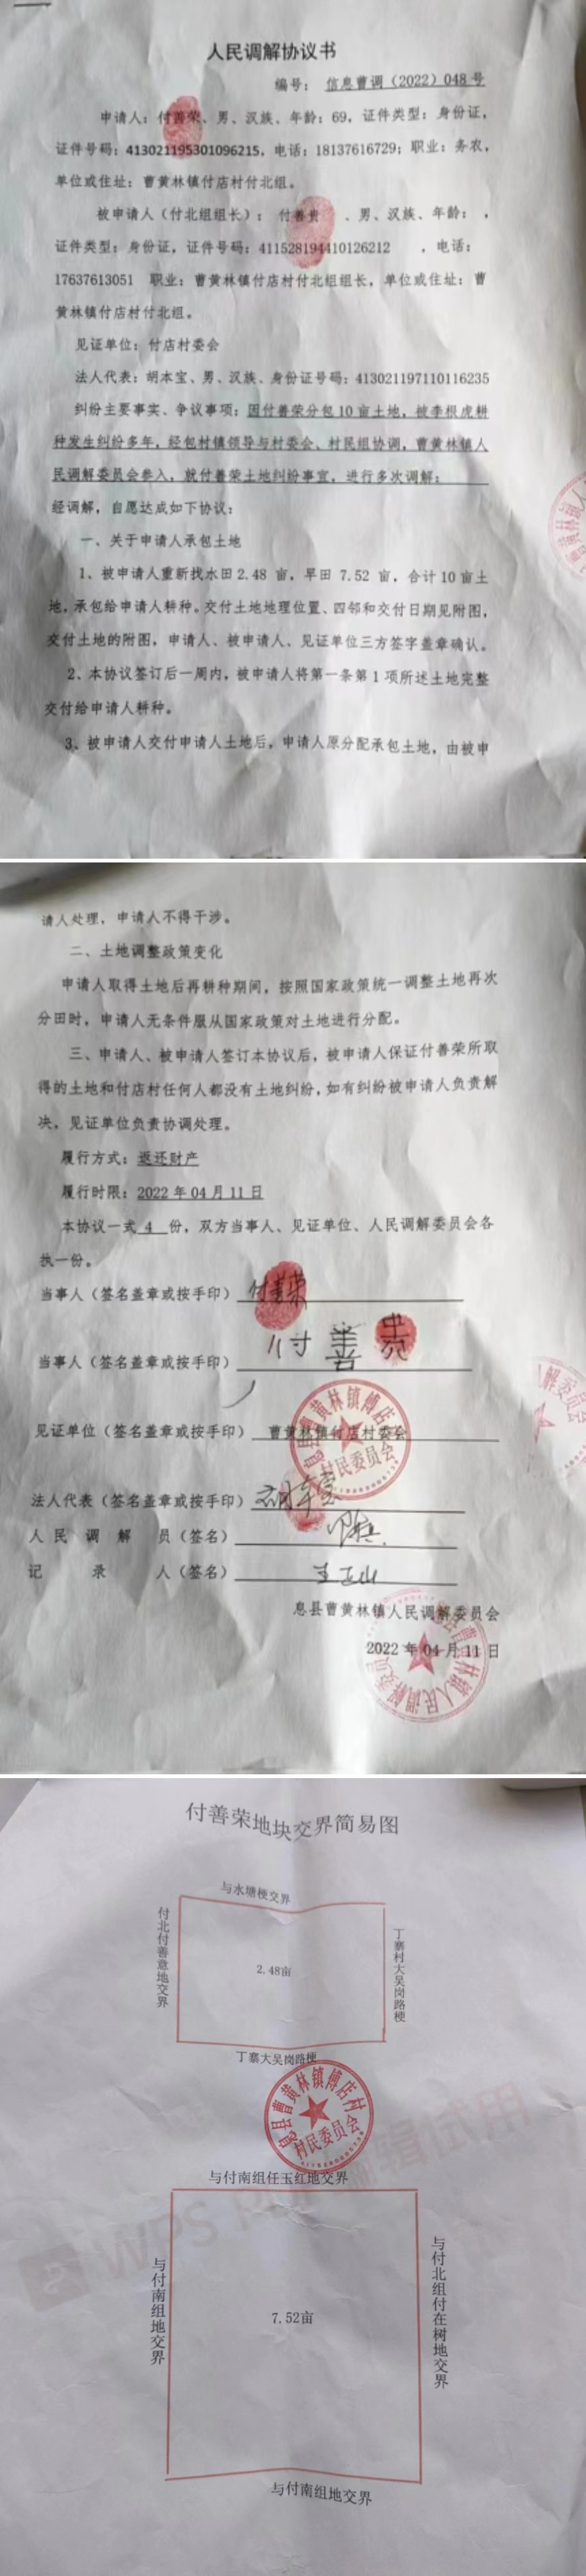 人民调解协议书
编号： 信息曹调（2022）048 号
申请人：付善荣、男、汉族、年龄：69，证件类型：身份证，
证件号码：413021195301096215，电话：18137616729；职业：务农，
单位或住址：曹黄林镇付店村付北组。
被申请人（付北组组长）：付善贵 、男、汉族、年龄： ，
证件类型：身份证，证件号码：411528194410126212 ，电话：
17637613051 职业：曹黄林镇付店村付北组组长，单位或住址：曹
黄林镇付店村付北组。
见证单位：付店村委会
法人代表：胡本宝、男、汉族、身份证号码：413021197110116235
纠纷主要事实、争议事项：因付善荣分包10亩土地，被李根虎耕
种发生纠纷多年，经包村镇领导与村委会、村民组协调，曹黄林镇人
民调解委员会参入，就付善荣土地纠纷事宜，进行多次调解：
经调解，自愿达成如下协议：
一、关于申请人承包土地
1、被申请人重新找水田 2.48 亩，旱田 7.52 亩，合计 10 亩土
地，承包给申请人耕种。交付土地地理位置、四邻和交付日期见附图，
交付土地的附图，申请人、被申请人、见证单位三方签字盖章确认。
2、本协议签订后一周内，被申请人将第一条第 1 项所述土地完整
交付给申请人耕种。
3、被申请人交付申请人土地后，申请人原分配承包土地，由被申
请人处理，申请人不得干涉。
二、土地调整政策变化
申请人取得土地后再耕种期间，按照国家政策统一调整土地再次
分田时，申请人无条件服从国家政策对土地进行分配。
三、申请人、被申请人签订本协议后，被申请人保证付善荣所取
得的土地和付店村任何人都没有土地纠纷，如有纠纷被申请人负责解
决，见证单位负责协调处理。
履行方式：返还财产
履行时限：2022 年 04 月 11 日
本协议一式 4 份，双方当事人、见证单位、人民调解委员会各
执一份。
当事人（签名盖章或按手印） 付善荣
当事人（签名盖章或按手印） 付善贵
见证单位（签名盖章或按手印） 曹黄林镇付店村委会
息县曹黄林镇傅店村
村民委员会
法人代表（签名盖章或按手印） 胡本宝
人 民 调 解 员（签名）
记 录 人（签名） 王玉山
息县曹黄林镇人民调解委员会
2022 年 04 月 11 日
付善荣地块交界简易图
与水塘梗交界
付北付善意地交界
2.48亩
丁寨村大吴岗路梗
丁寨大吴岗路梗
息县曹黄林镇傅店村
村民委员会
与付南组任玉红地交界
与付南组地交界
7.52亩
与付北组付在树地交界
与付南组地交界